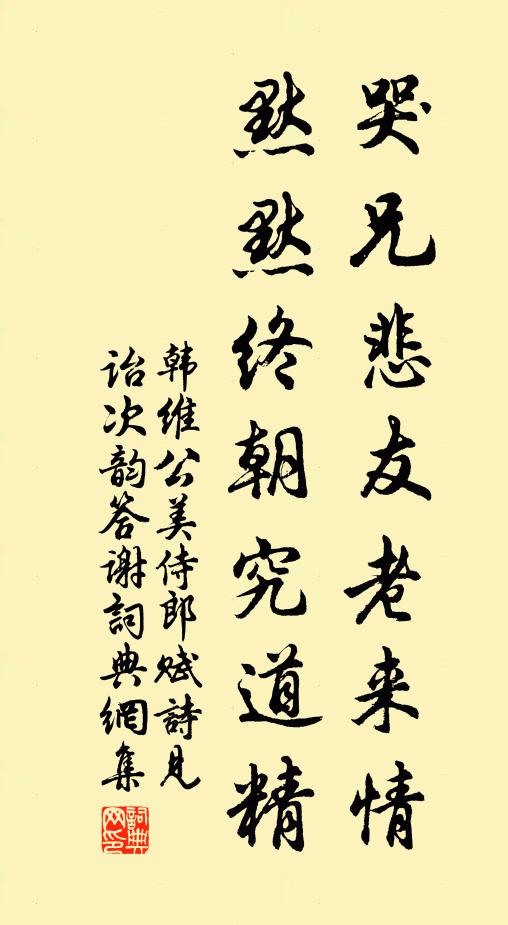 哭兄悲友老来情
默默终朝究道精
韩维公美侍郎赋詩见
诒次韵答谢詞典網集
詞典
网印